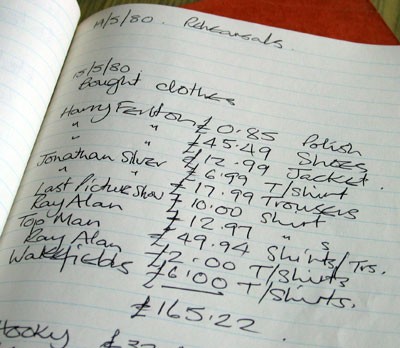 14/5/80. Rehearsals.
15/5/80.
Bought clothes
Harry Fenton £0.85 Polish
" " £45.49 Shoes
" " £12.99 Jacket.
Jonathan Silver £6.99 T/Shirt
" " £17.99 Trousers
Last Picture Show £10.00 Shirt
Ray Alan £12.97 " s
Top Man £49.94 Shirts/Trs.
Ray Alan £2.00 T/Shirts
Wakefields £6.00 T/Shirts.
£165.22
Hooky